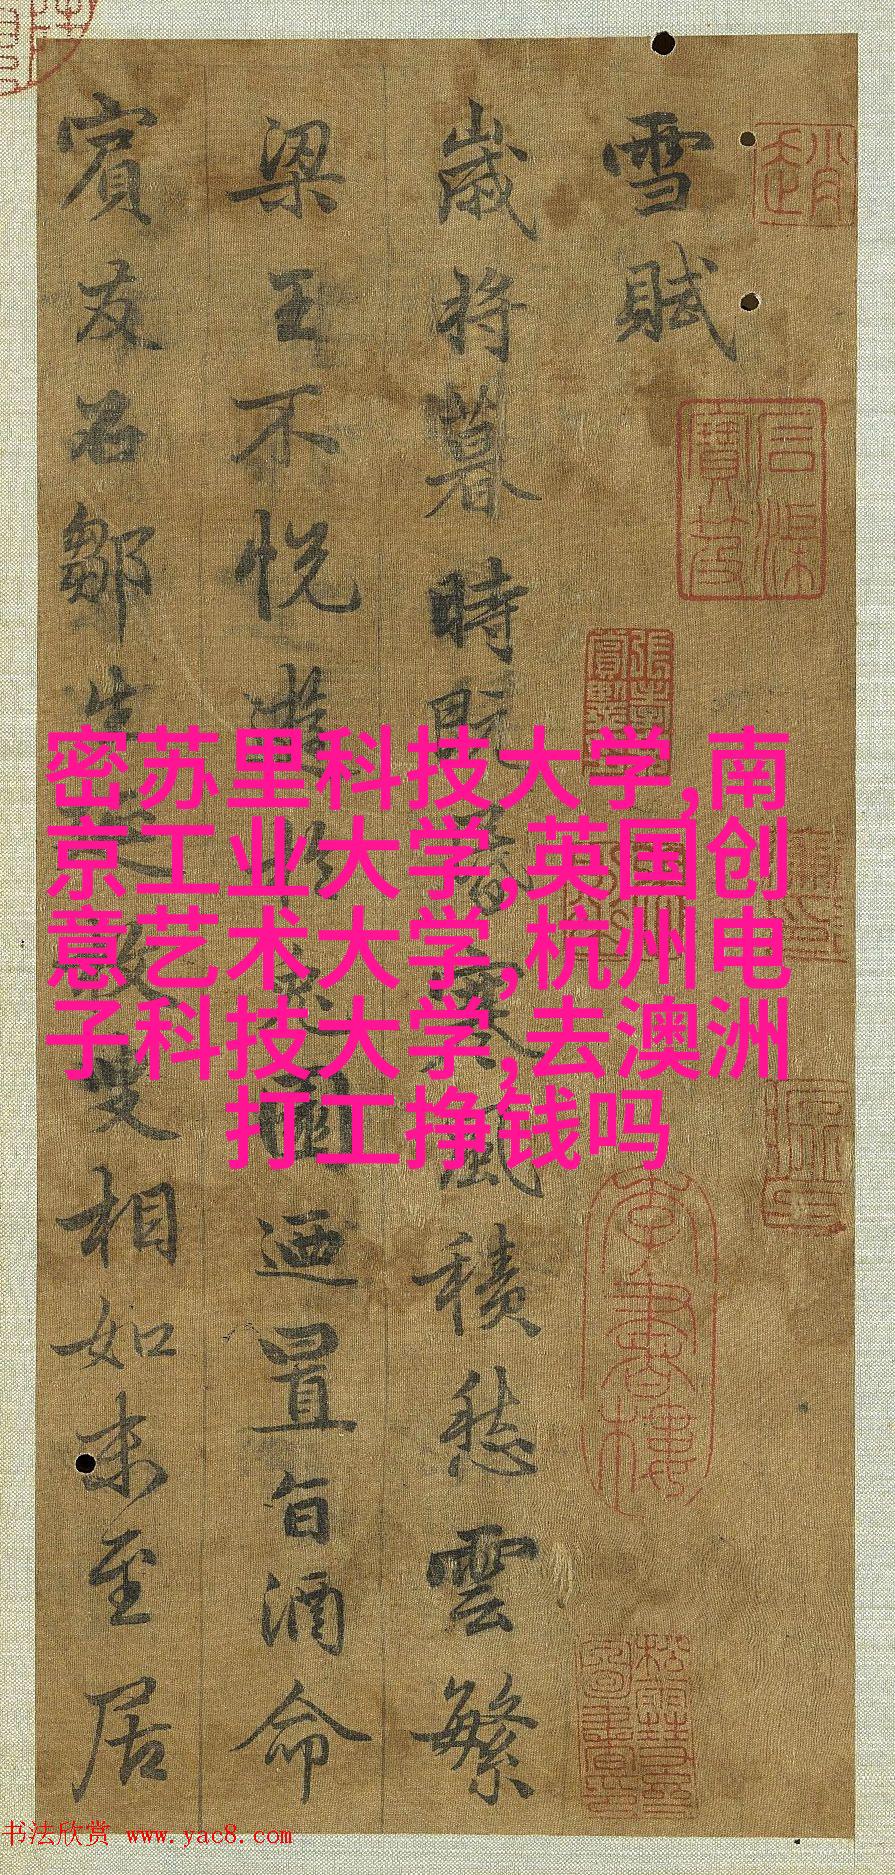 雪賦
歲將暮時既昏寒風積愁雲繁
梁王不悅遊於兔園迺置旨酒命
賓友召鄒生延枚叟相如末至居
密苏里科技大学,南
京工业大学,英国创
意艺术大学,杭州电
子科技大学,去澳洲
打工挣钱吗
书法欣赏 www.yac8.com